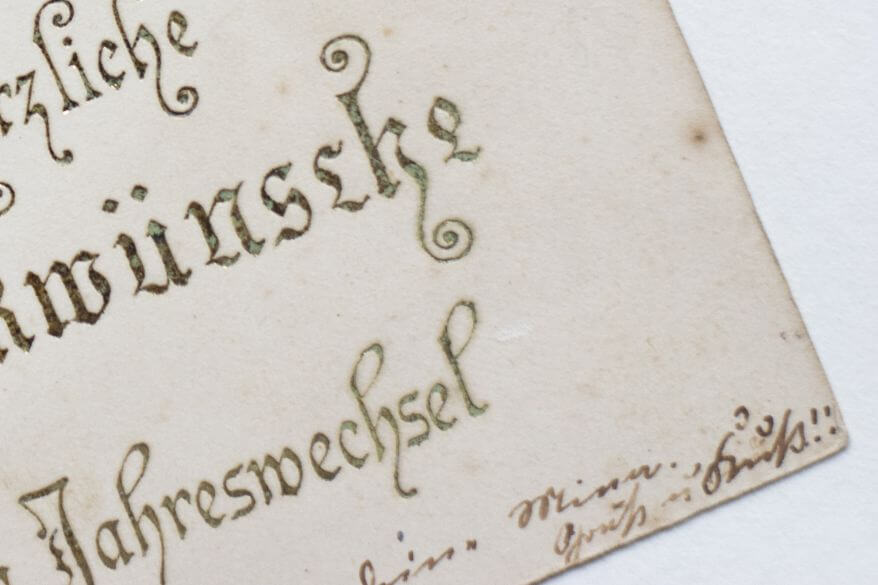 rzliche
kwünsche
Jahreswechsel
Deine Minna.
Gruß u. Kuß!!